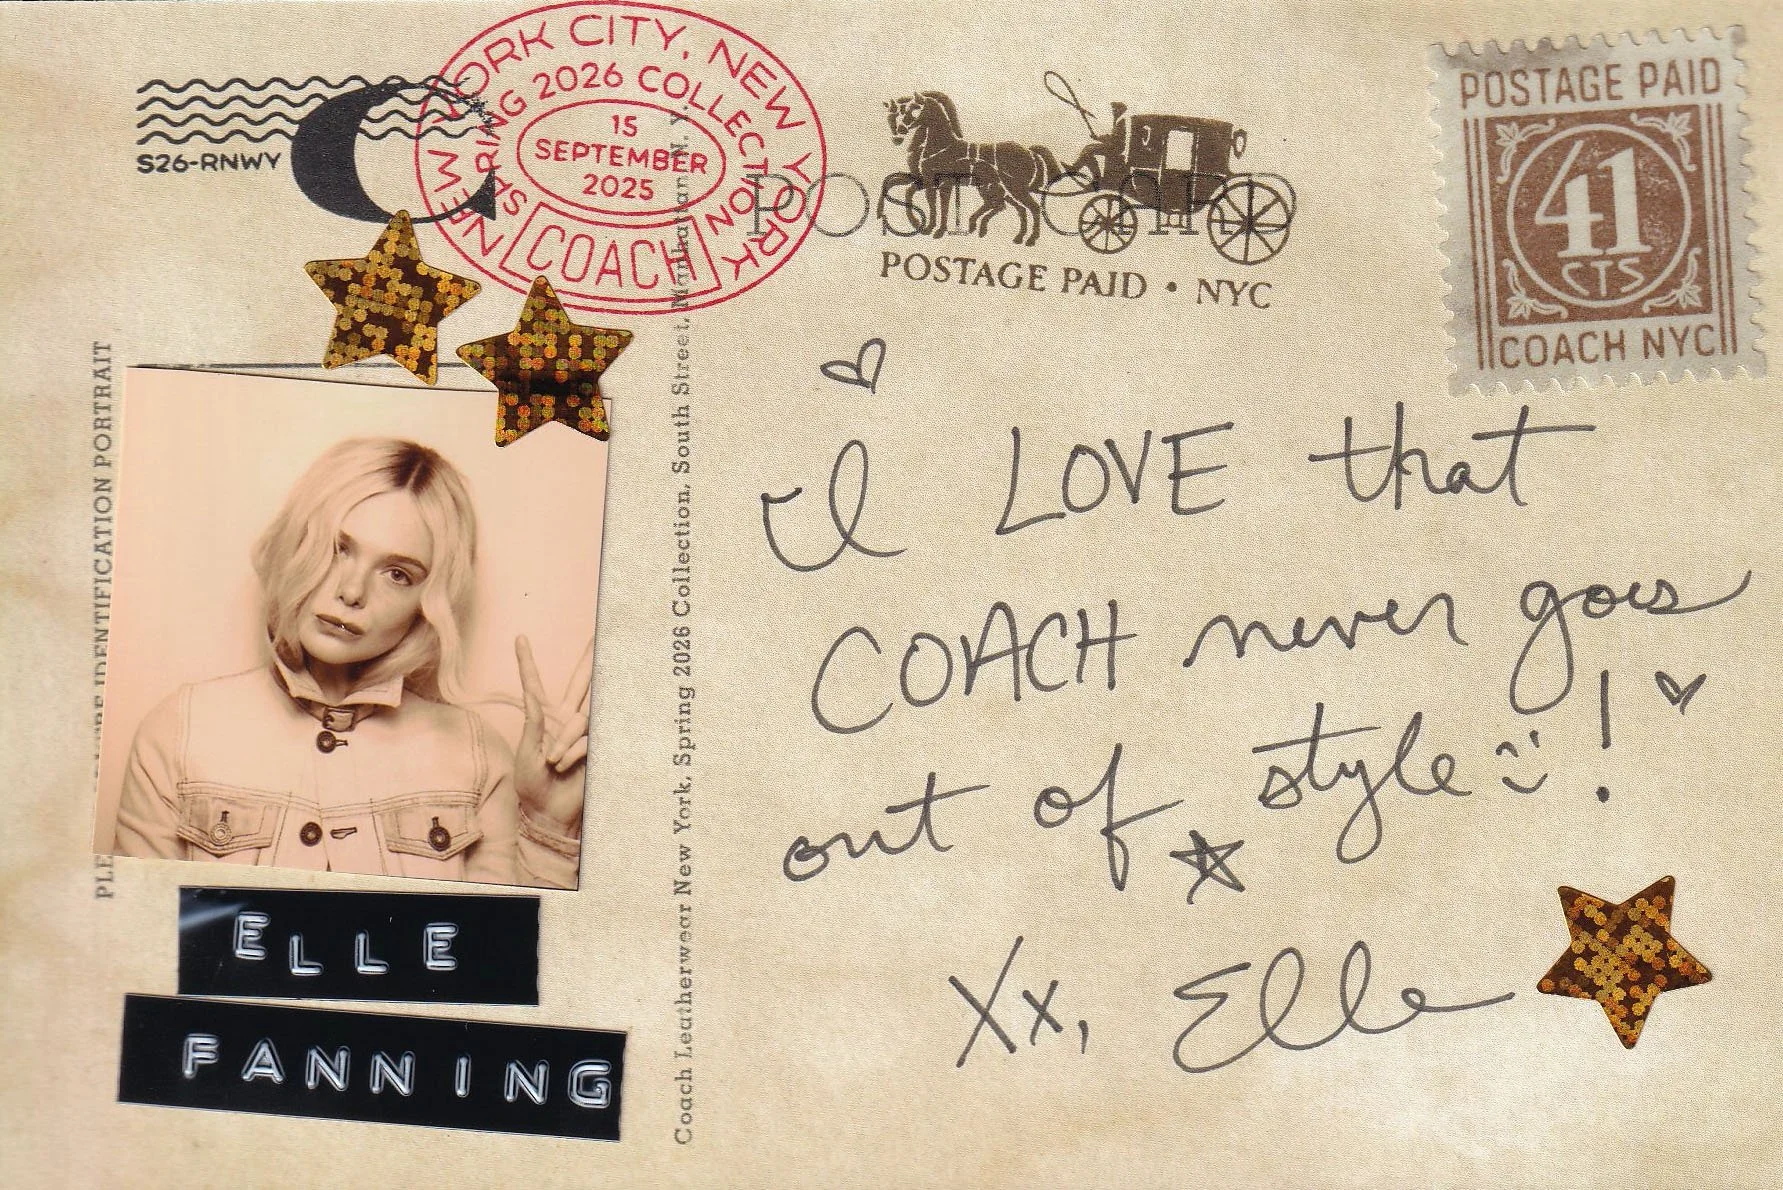 NEW YORK CITY, NEW YORK
SPRING 2026 COLLECTION
15
SEPTEMBER
2025
COACH
S26-RNWY
POST CARD
POSTAGE PAID • NYC
POSTAGE PAID
41
CTS
COACH NYC
IDENTIFICATION PORTRAIT
Coach Leatherwear New York, Spring 2026 Collection, South Street, Manhattan N. Y.
I LOVE that
COACH never goes
out of style !
Xx, Elle
ELLE
FANNING